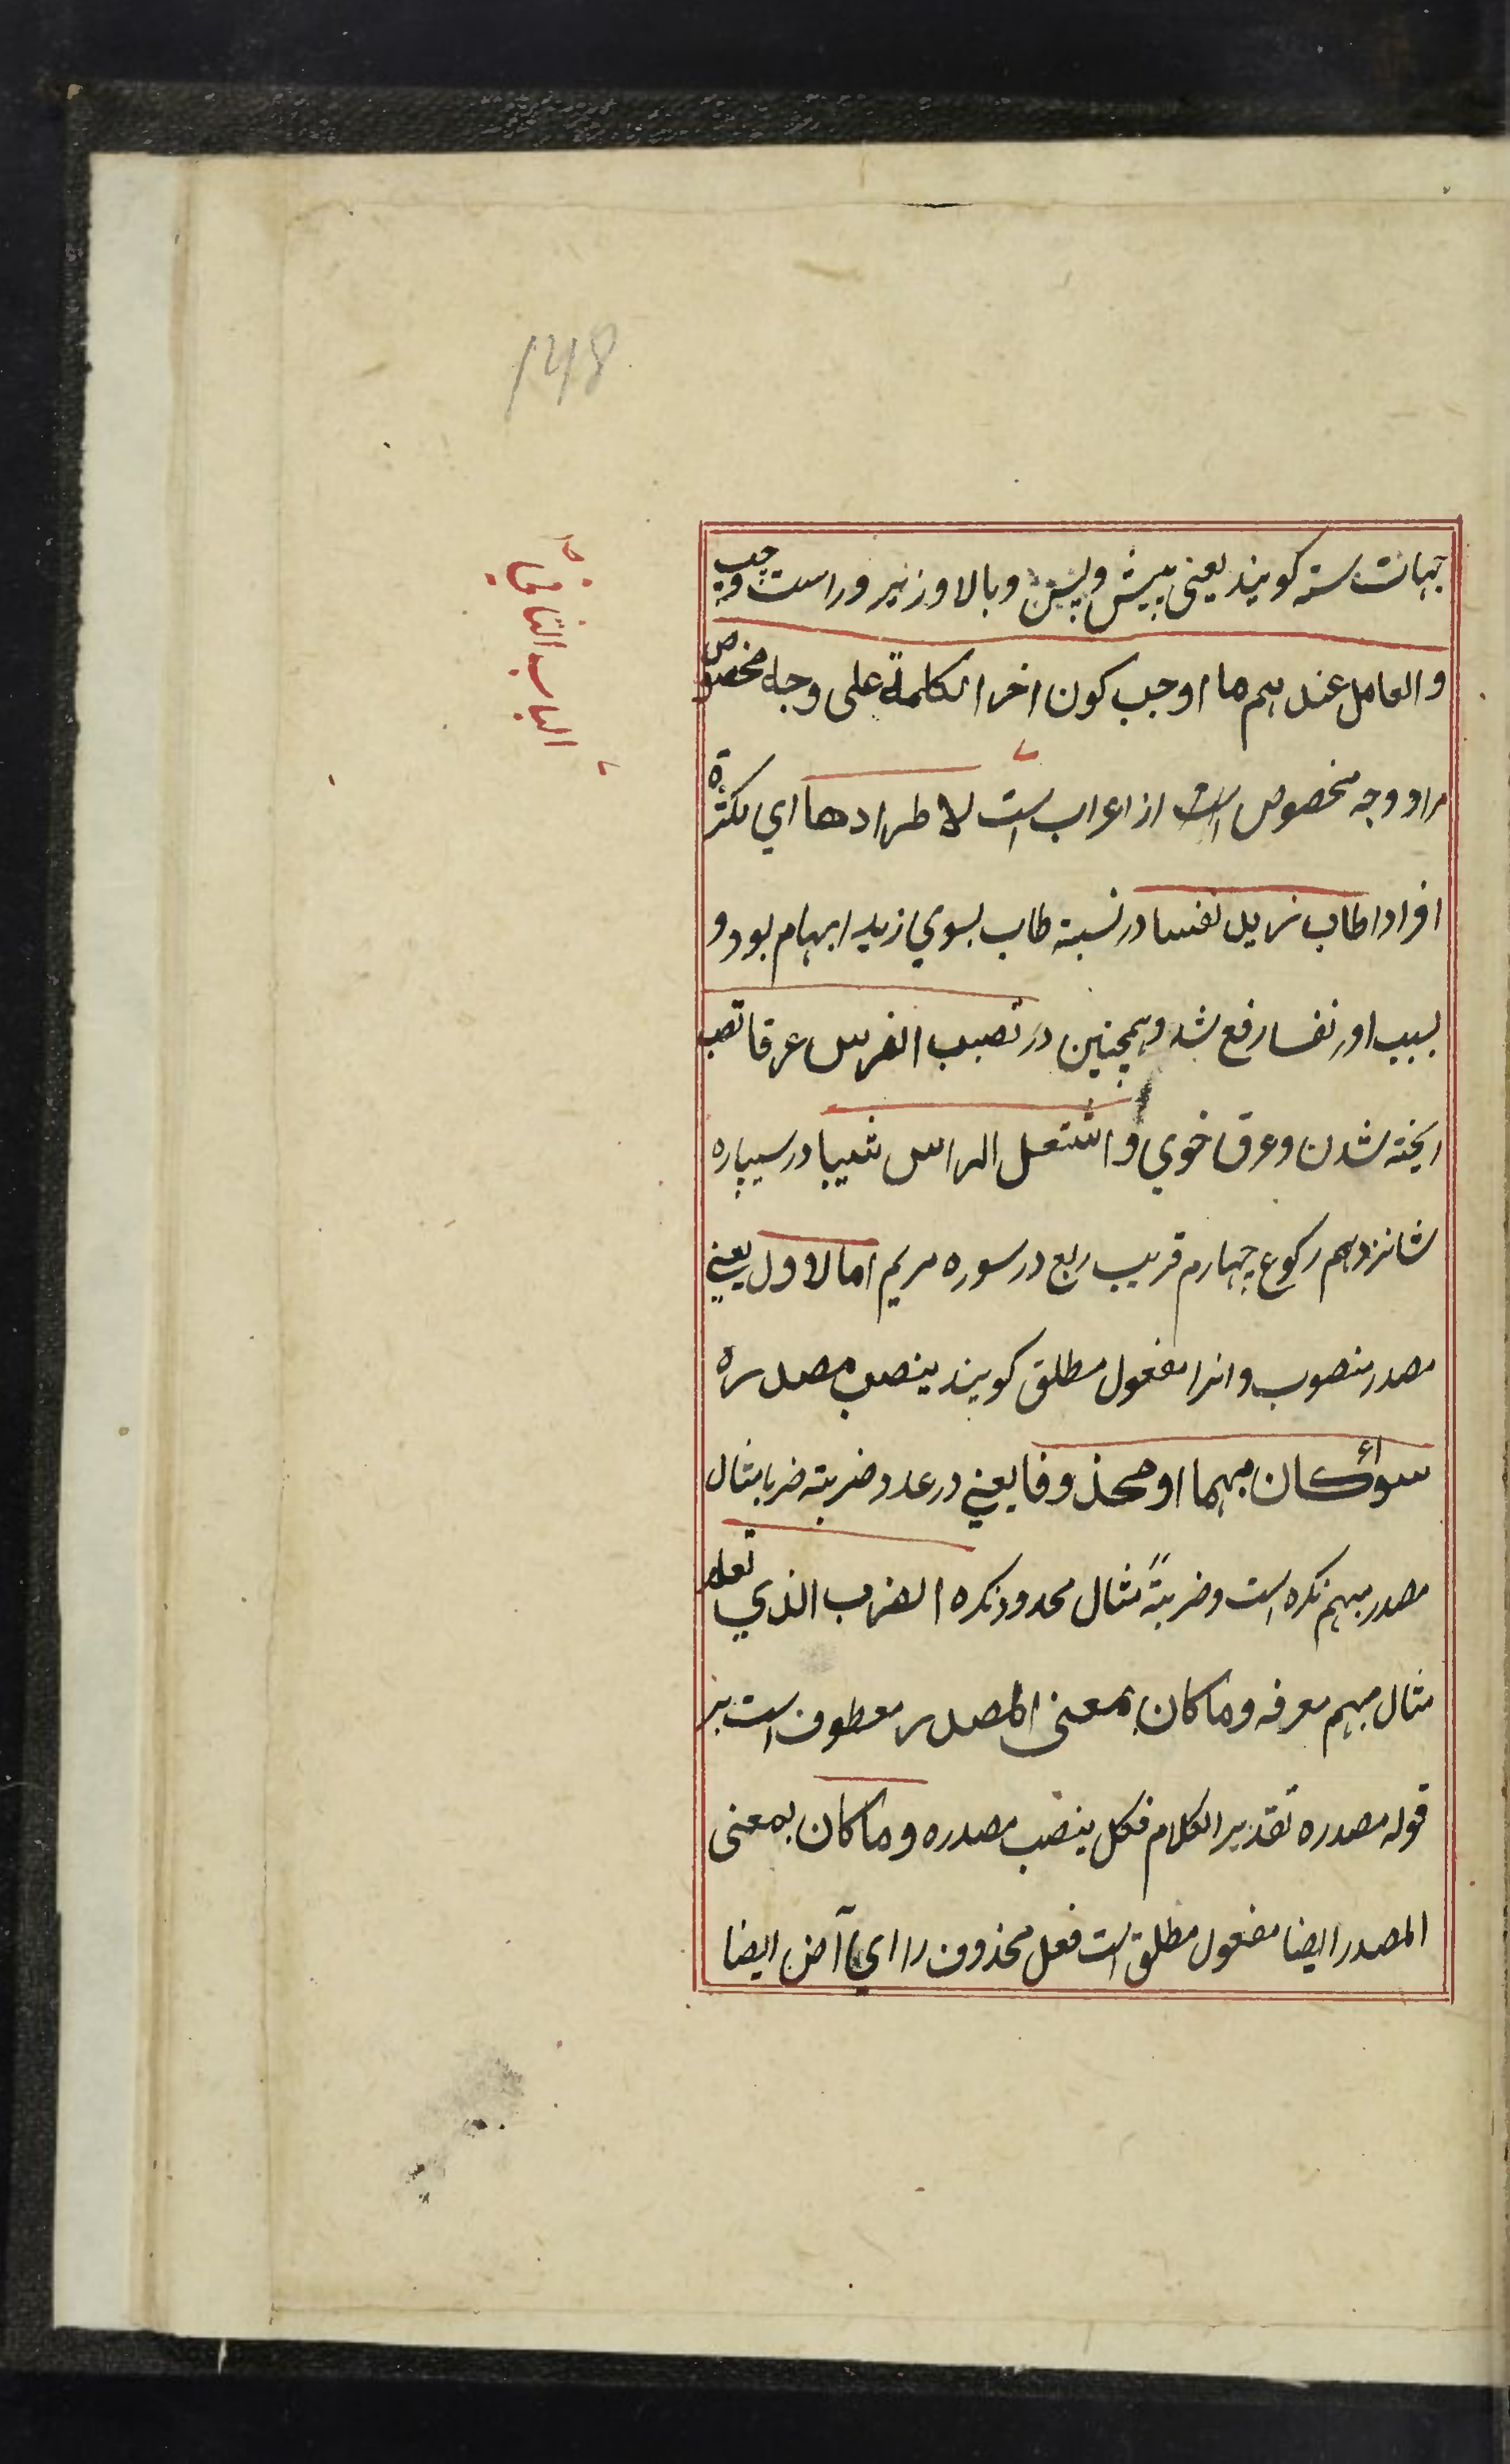 148
الباب الثانی
جهات سته کویند یعنی پیش و پس و بالا و زیر و راست و چپ
و العامل عندهم ما اوجب کون اخر الکلمة علی وجه مخصوص
مراد وجه مخصوص است از اعراب است لاطرادها ای لکثرة
افرادا طاب زید نفسا در نسبة طاب بسوی زید ابهام بود و
بسبب اور نفسا رفع شد و همچنین در تصبب الفرس عرقا تصبب
ریخته شدن و عرق خوی و اشتعل الراس شیبا در سیپاره
شانزدهم رکوع چهارم قریب ربع در سوره مریم اما الاول یعنی
مصدر منصوب و انرا مفعول مطلق کویند ینصب مصدره
سواء کان مبهما او محذوفا یعنی در عدد ضربته ضربا مثال
مصدر مبهم نکره است و ضربةً مثال محدود نکره الضرب الذی تعلم
مثال مبهم معرفه و ما کان بمعنی المصدر معطوف است بر
قوله مصدره تقدیر الکلام فکل ینصب مصدره و ما کان بمعنی
المصدر ایضا مفعول مطلق است فعل محذوف را ای آض ایضا